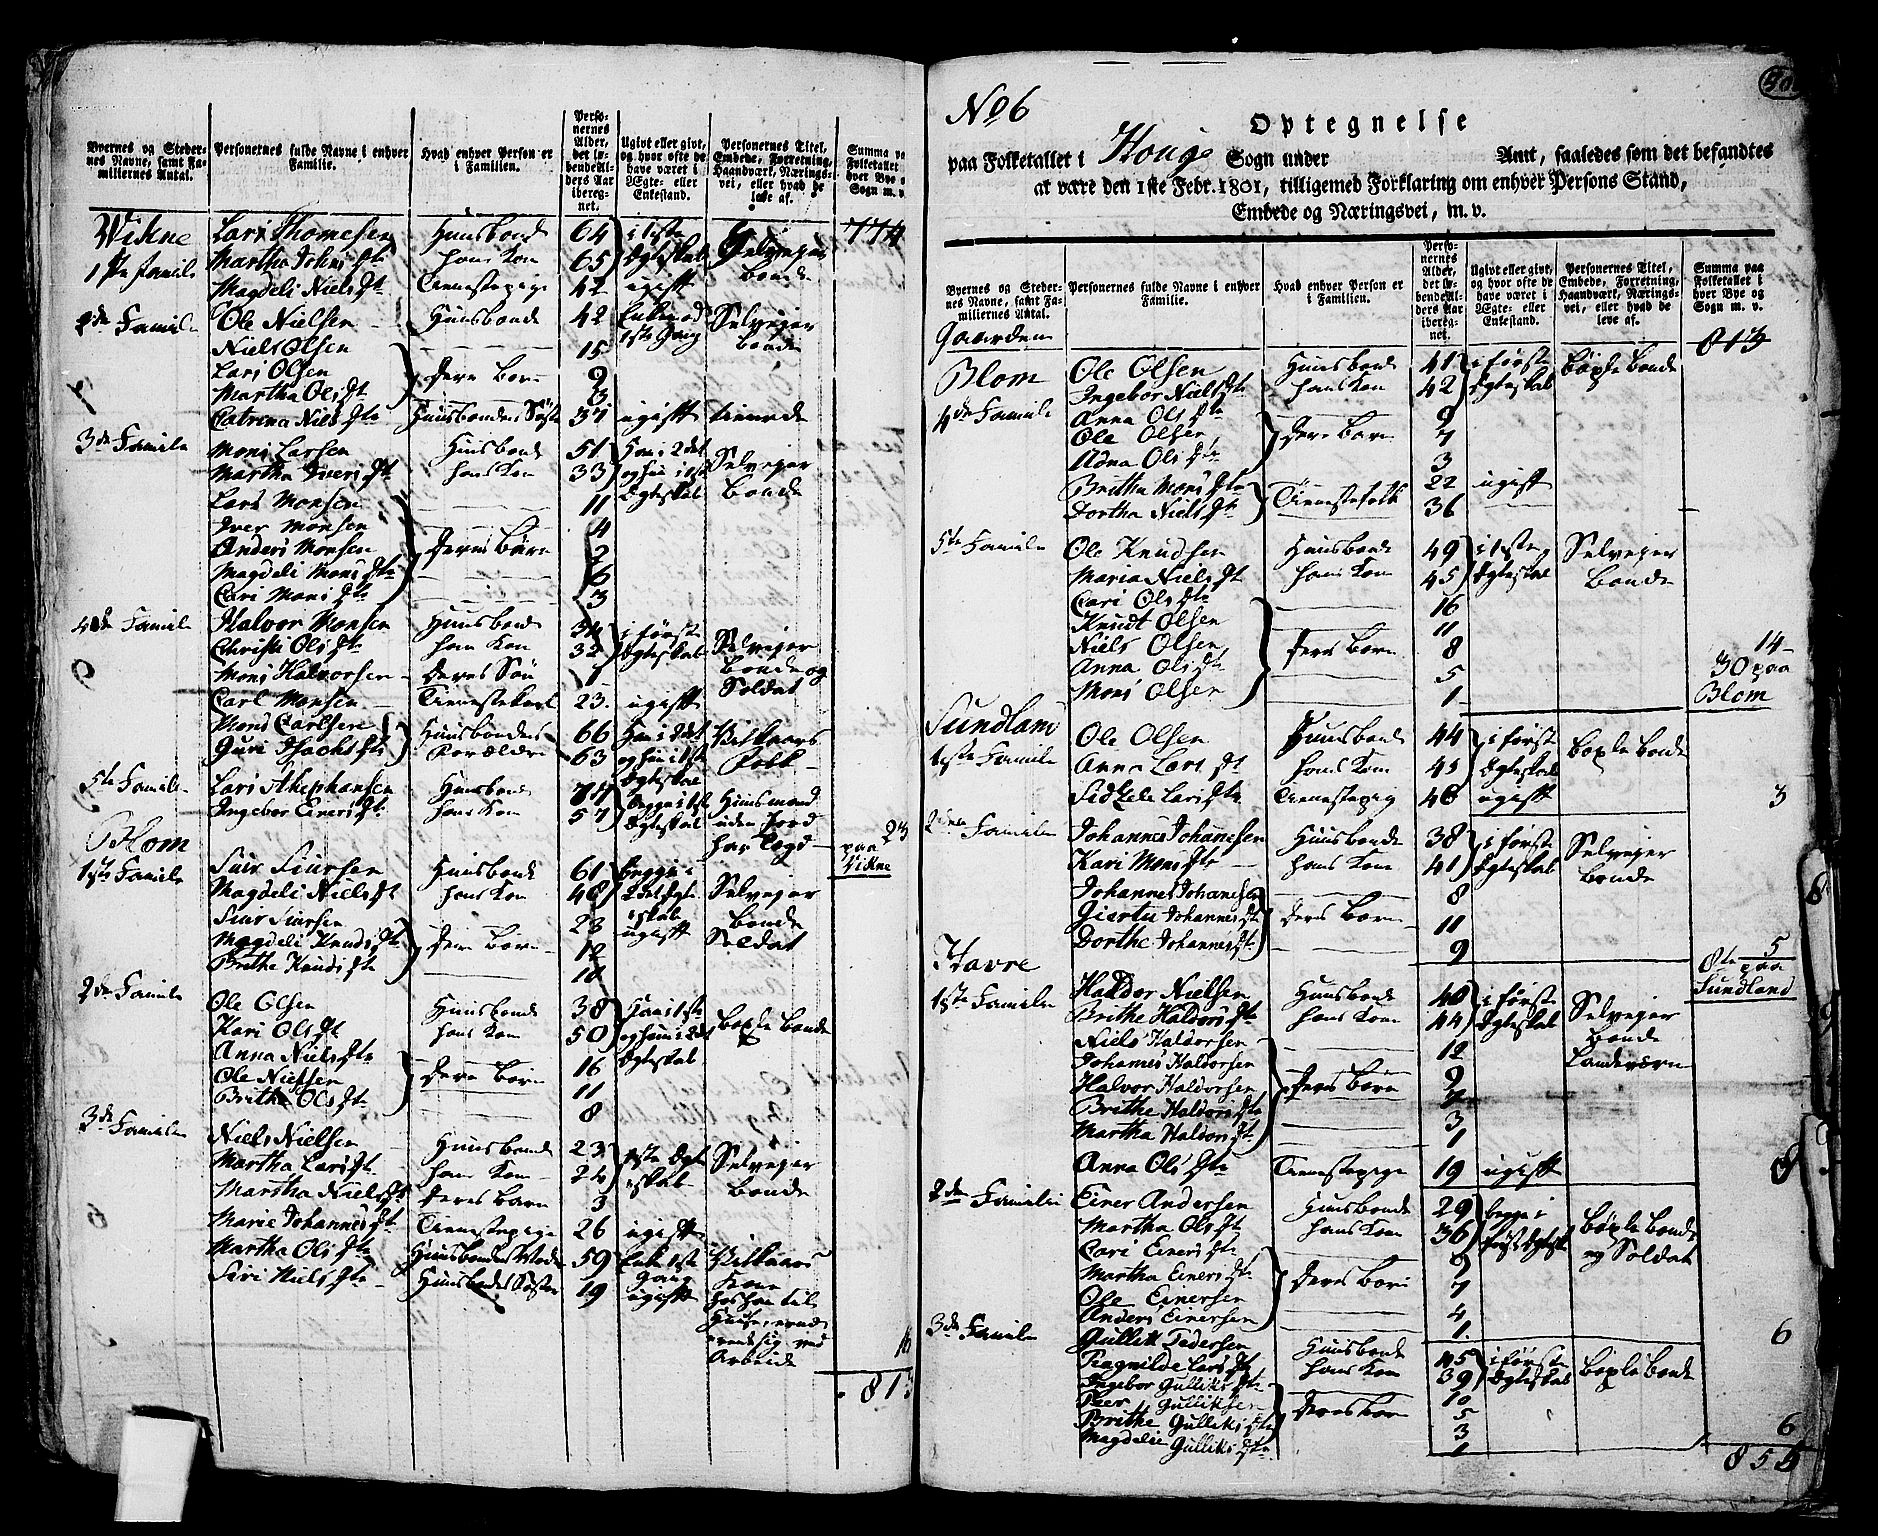 Byernes og Steder-
nes Navne, samt Fa-
miliernes Antal.
Personernes fulde Navne i enhver
Familie.
Hvad enhver Person er
i Familien.
Perso-
nernes
Alder,
det lø-
bende Al-
ders Aar
ibereg-
net.
Ugivt eller givt,
og hvor ofte de
have været i
Ægte- eller
Enkestand.
Personernes Titel,
Embede, Forretning,
Haandværk, Nærings-
vei, eller hvad de
leve af.
Summa paa
Folketallet i
hver Bye og
Sogn m. v.
Wikne Lars Thomesen Huusbonde 64 i 1ste Selvejer 774
1ste Famile Martha Johns dtr hans Kone 65 Ægteskab bonde
Magdeli Niels dtr Tienestepige 42 ugift
2de Famile Ole Nielsen Huusbonde 42 Enkemand Selvejer
1ste Gang bonde
Niels Olsen 15
Lars Olsen 9
Martha Ols dtr Deres Børn 3
Catrina Niels dtr Huusbondens Søster 37 ugift
3de Famile Mons Larsen Huusbonde 51 Han i 2det Selvejer
Martha Ivers dtr hans Kone 33 og hun i 1ste bonde
Ægteskab
Lars Monsen 11
Iver Monsen 4
Anders Monsen Deres Børn 2
Magdeli Mons dtr 6
Cari Mons dtr 3
4de Famile Halvor Monsen Huusbonde 34 i første Selvejer
Christi Ols dtr hans Kone 32 Ægteskab bonde og
Mons Halvorsen Deres Søn 1 Soldat
Carl Monsen Tienestekarl 23 ugift
Mons Carlsen Huusbondens 66 Han i 2det
Guri Isachs dtr Forældre 63 og hun i 1ste Folk
Ægteskab
5te Famile Lars Stephansen Huusbonde 74 begge i 1ste Huusmand
Ingebor Einers dtr hans Kone 57 Ægteskab uden Jord
23
paa
Vikne
Blom
1ste Famile Siur Siursen Huusbonde 61 begge i Selvejer
Magdeli Niels dtr hans Kone 48 2det Ægte bonde
skab
Siur Siursen 23 ugift Soldat
Magdeli Knuds dtr Deres Børn 12
Brithe Knuds dtr 10
2de Famile Ole Olsen Huusbonde 38 Han i 1ste
Kari Ols dtr hans Kone 50 og hun i 2det bøxle bonde
Anna Niels dtr 16 Ægteskab
Ole Nielsen Deres Børn 11
Brithe Ols dtr 8
3de Famile Niels Nielsen Huusbonde 23 1ste Ægte Selvejer
Martha Lars dtr hans Kone 24 skab bonde
Martha Niels dtr Deres Barn 3
Marie Johannes dtr Tienestepige 26 ugift
Martha Ols dtr Huusbondens Moder 59 Enke 1ste
Gang
Siri Niels dtr Huusbondes Søster 19 ugift
Arbeide
813
No 6
Optegnelse
paa Folketallet i Houge Sogn under Amt, saaledes som det befandtes
at være den 1ste Febr. 1801, tilligemed Forklaring om enhver Persons Stand,
Embede og Næringsvei, m. v.
Byernes og Steder-
nes Navne, samt Fa-
miliernes Antal.
Personernes fulde Navne i enhver
Familie.
Hvad enhver Person er
i Familien.
Perso-
nernes
Alder,
det lø-
bende Al-
ders Aar
ibereg-
net.
Ugivt eller givt,
og hvor ofte de
have været i
Ægte- eller
Enkestand.
Personernes Titel,
Embede, Forretning,
Haandværk, Nærings-
vei, eller hvad de
leve af.
Summa paa
Folketallet i
hver Bye og
Sogn m. v.
Gaarden 813
Blom Ole Olsen Huusbonde 41 i første bøxle bonde
Ingebor Niels dtr hans Kone 42 Ægteskab
4de Famile Anna Ols dtr 9
Ole Olsen Deres Børn 7
Adna Ols dtr 3
Britha Mons dtr Tienestefolk 22 ugift
Dortha Niels dtr 36
5te Famile Ole Knudsen Huusbonde 49 i 1ste Selvejer
Maria Niels dtr hans Kone 45 Ægteskab bonde
Cari Ols dtr 16
Knudt Olsen 11
Niels Olsen Deres Børn 8
Anna Ols dtr 5
Mons Olsen 1
14
30 paa
Blom
Sundland Ole Olsen Huusbonde 44 i første bøxle bonde
1ste Famile Anna Lars dtr hans Kone 45 Ægteskab
Sidzele Lars dtr Tienestepig 48 ugift 3
2den Famile Johannes Johannesen Huusbonde 38 i første Selvejer
Kari Mons dtr hans Kone 41 Ægteskab bonde
Johannes Johannesen 8
Giertu Johannes dtr Deres Børn 11
Dorthe Johannes dtr 9
5
8te paa
Sundland
Havre
1ste Famile Haldor Nielsen Huusbonde 40 i første Selvejer
Brithe Haldors dtr hans Kone 44 Ægteskab bonde
Niels Haldorsen 12 Landeværn
Johannes Haldorsen 9
Halvor Haldorsen Deres Børn 7
Brithe Haldors dtr 3
Martha Haldors dtr 1
Anna Ols dtr Tienestepige 19 ugift 8
2de Famile Einer Andersen Huusbonde 29 begge i bøxle bonde
Martha Ols dtr hans Kone 36 første Ægtesk og Soldat
Cari Einers dtr 9
Martha Einers dtr Deres Børn 7
Ole Einersen 4
Anders Einersen 1 6
3de Famile Gullik Pedersen Huusbonde 45 i første bøxle bonde
Ragnilde Lars dtr hans Kone 39 Ægteskab
Ingebor Gulliks dtr 10
Peer Gulliksen Deres børn 5
Brithe Gulliks dtr 3
Magdelie Gulliks dtr 1 6
855